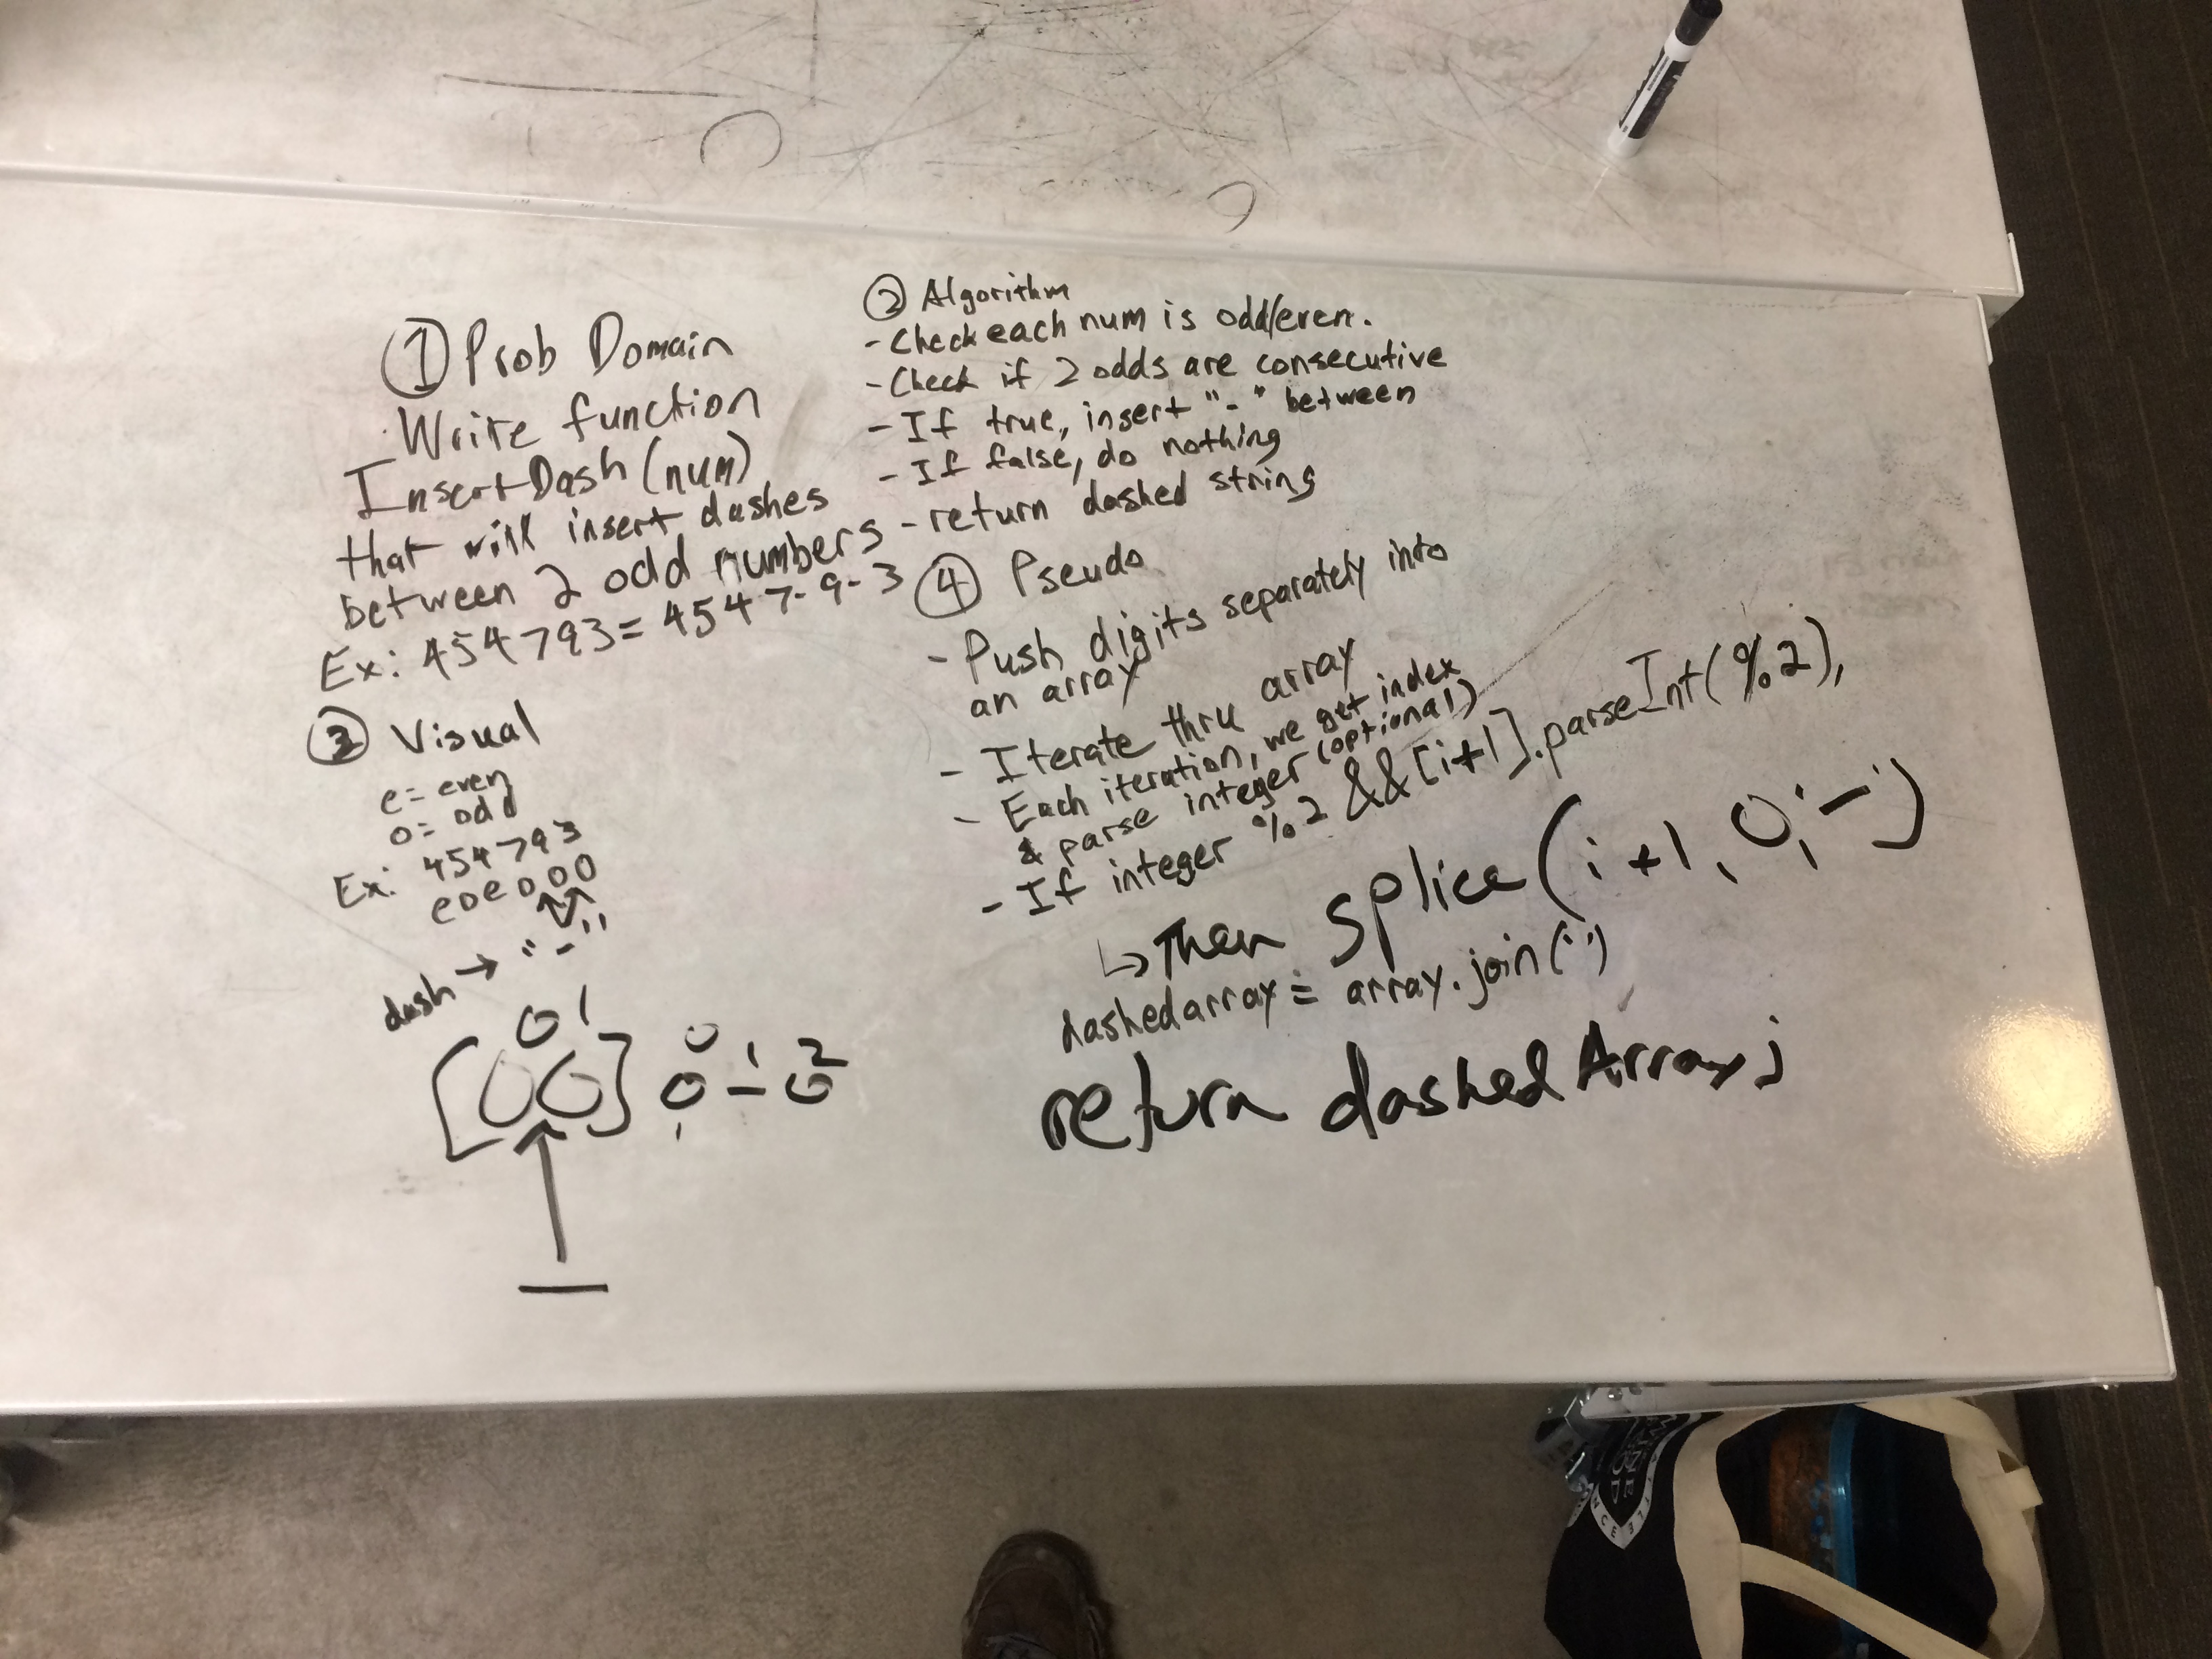 ① Prob Domain
· Write function
InsertDash(num)
that will insert dashes
between 2 odd numbers
Ex: 454793 = 4547-9-3
② Algorithm
- Check each num is odd/even.
- Check if 2 odds are consecutive
- If true, insert "-" between
- If false, do nothing
- return dashed string
③ Visual
e = even
o = odd
Ex: 454793
eoeooo
dash → "-"
[o, o]
0 1 2
o - o
④ Pseudo
- Push digits separately into
an array
- Iterate thru array
- Each iteration, we get index
& parse integer (optional)
- If integer %2 && [i+1].parseInt(%2),
↳ Then splice(i+1, 0, '-')
dashedarray = array.join('')
return dashedArray;